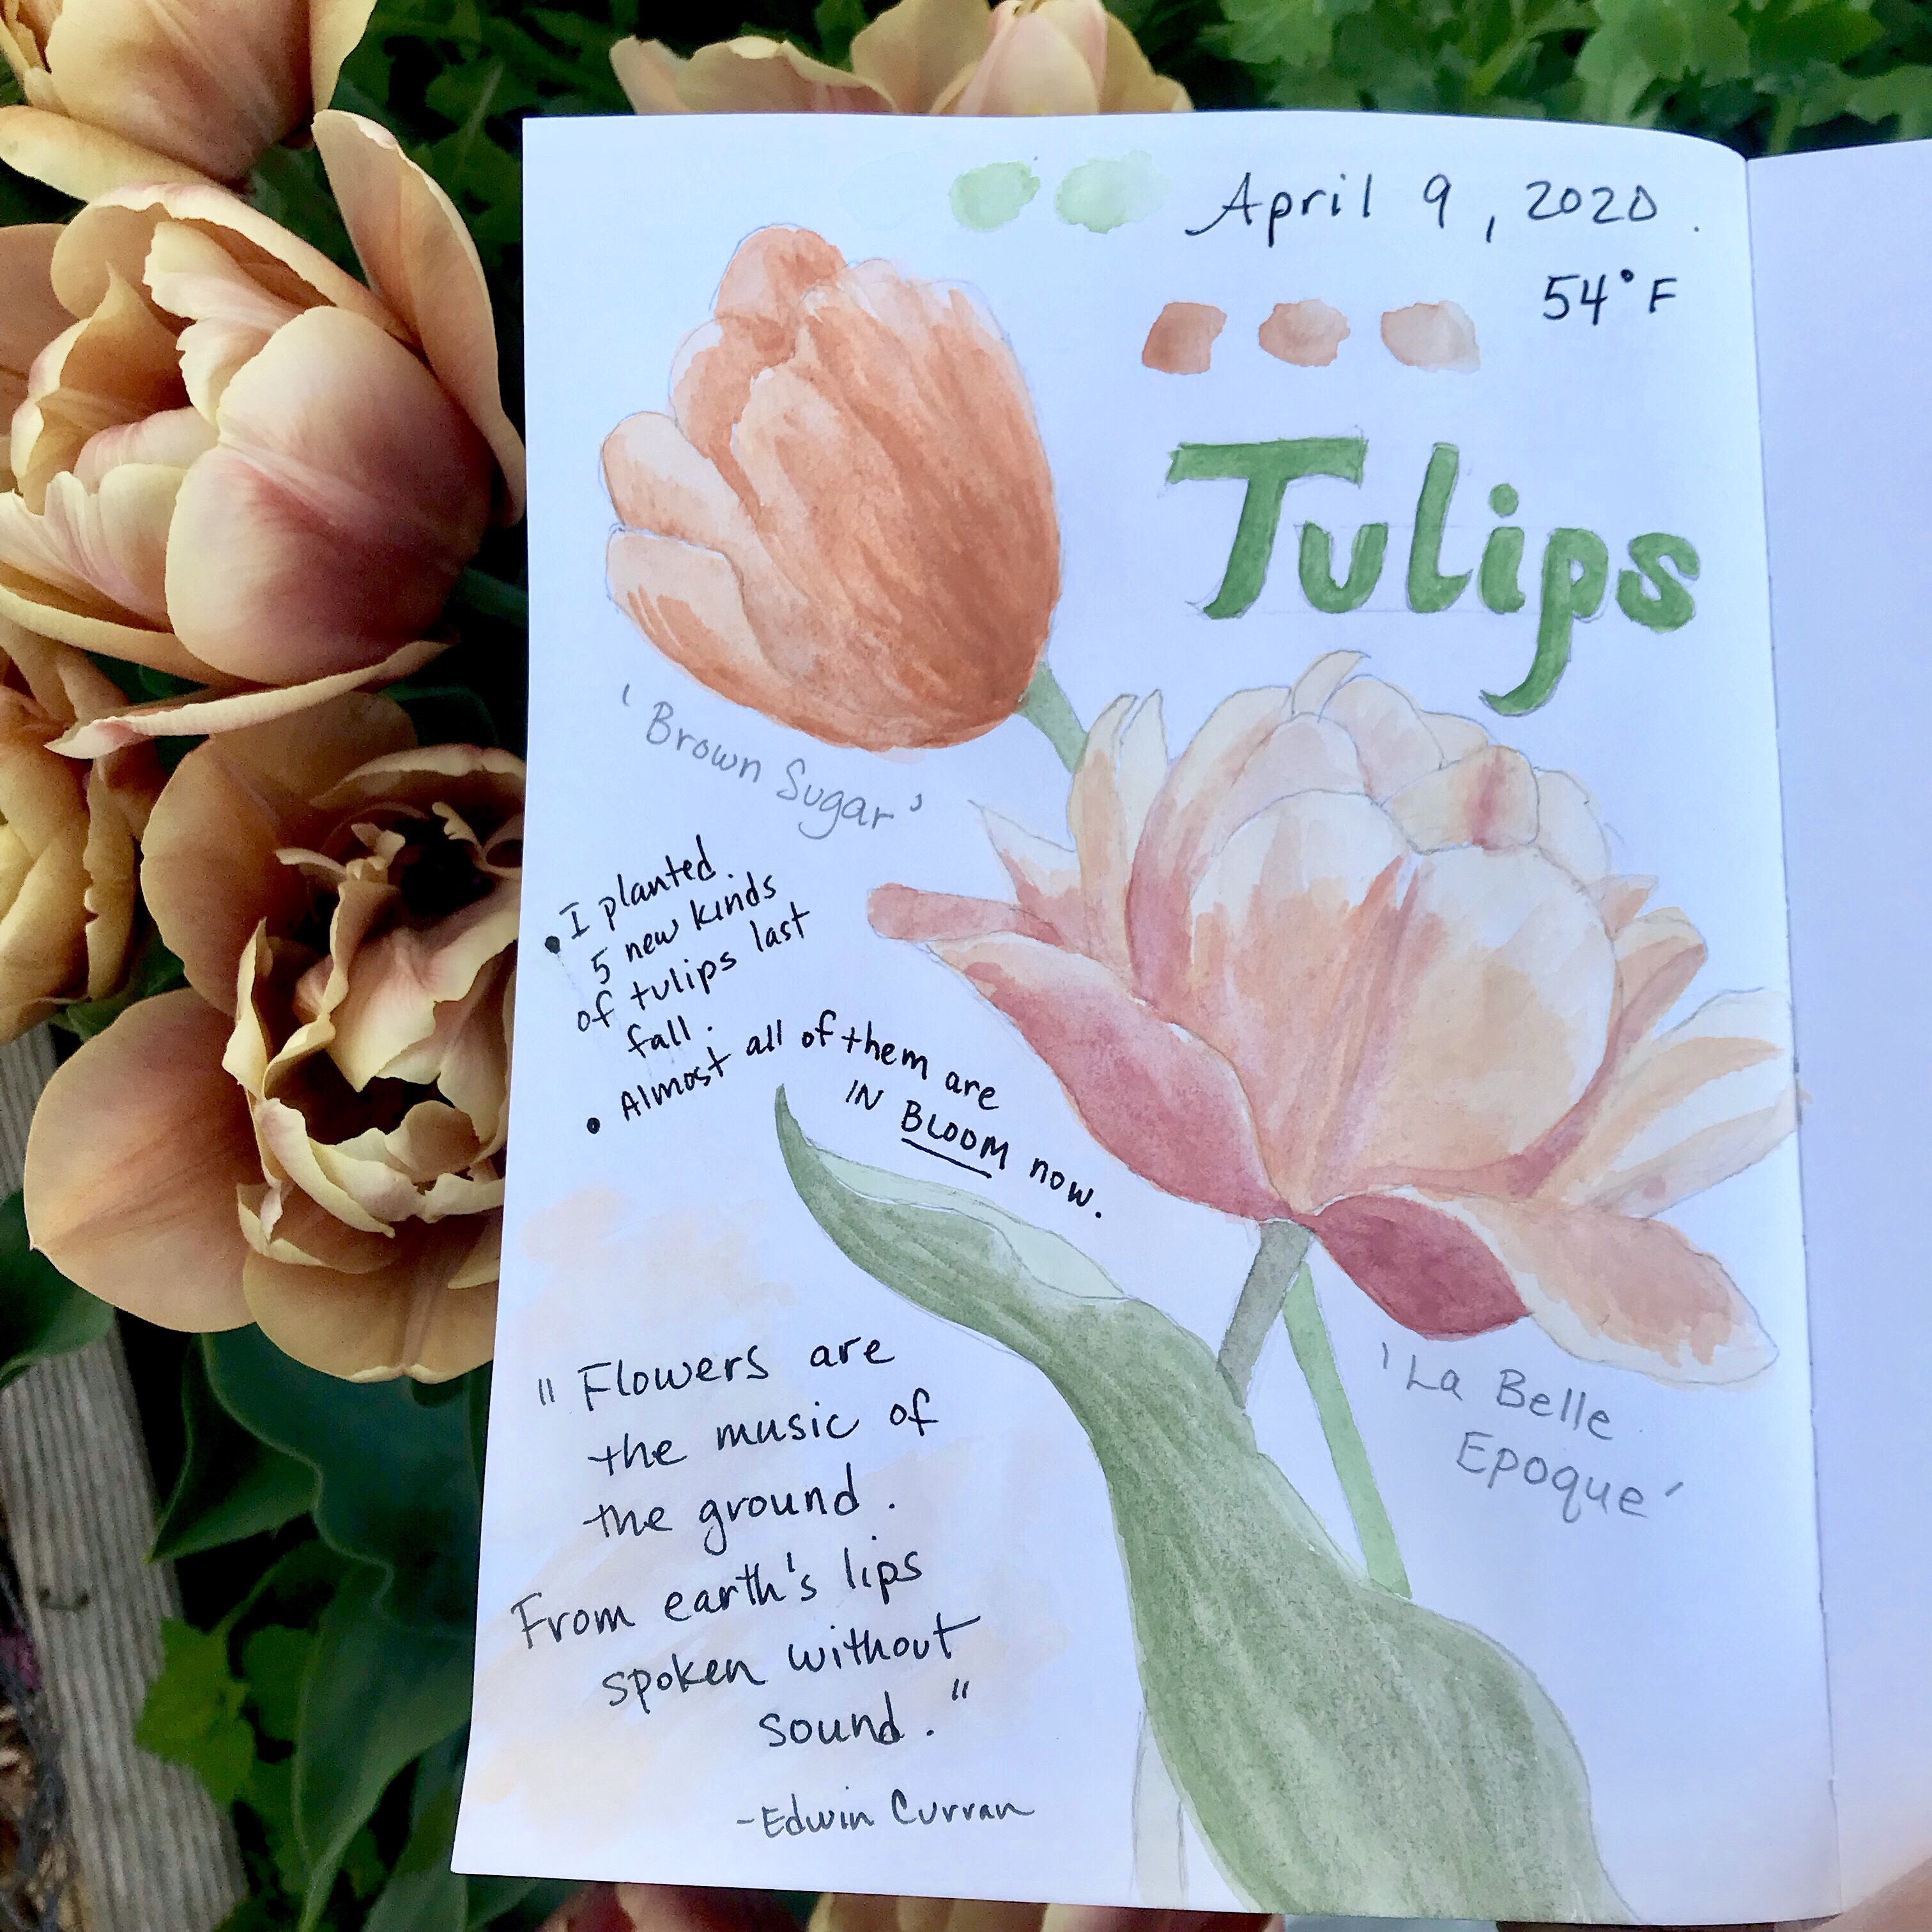 April 9, 2020.
54°F
Tulips
'Brown Sugar'
• I planted.
5 new kinds
of tulips last
fall.
• Almost all of them are
IN BLOOM now.
'La Belle
Epoque'
"Flowers are
the music of
the ground.
From earth's lips
spoken without
sound."
-Edwin Curran